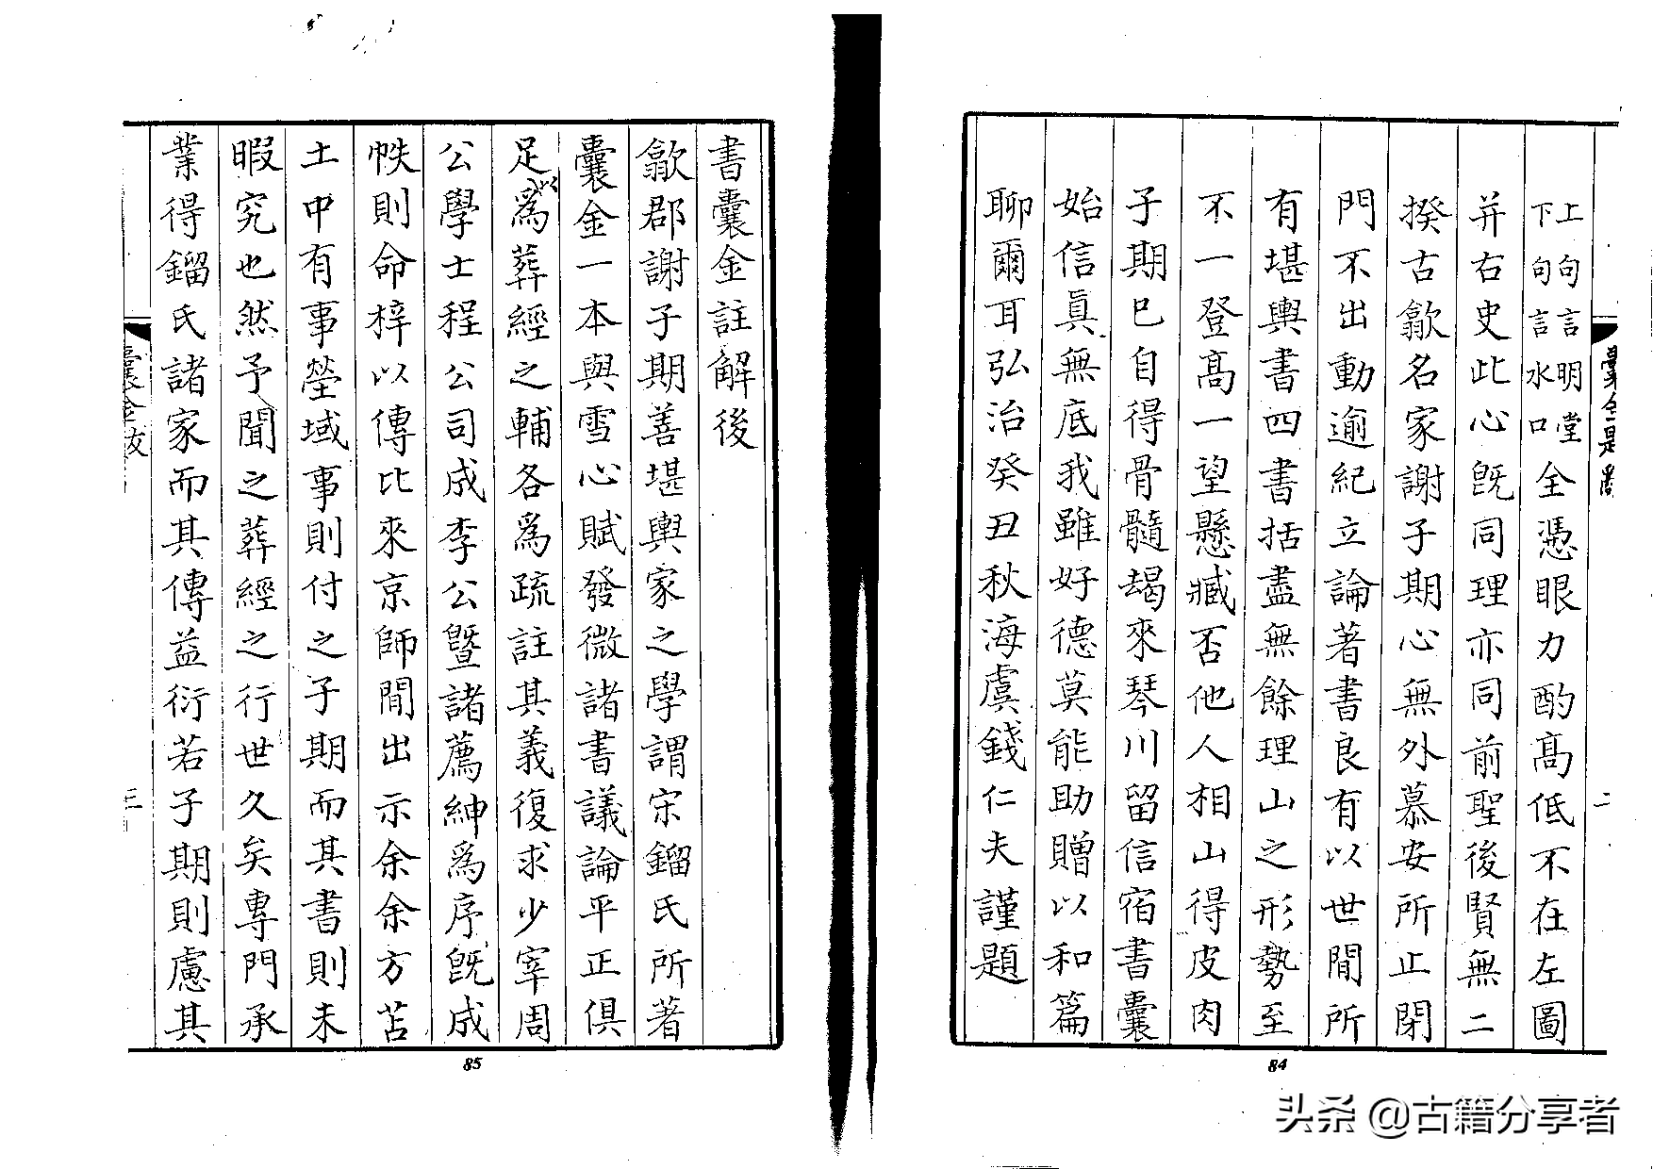 上句言明堂
下句言水口
全憑眼力酌高低不在左圖
并右史此心旣同理亦同前聖後賢無二
揆古歙名家謝子期心無外慕安所止閉
門不出動逾紀立論著書良有以世間所
有堪輿書四書括盡無餘理山之形勢至
不一登高一望懸臧否他人相山得皮肉
子期已自得骨髓朅來琴川留信宿書囊
始信眞無底我雖好德莫能助贈以和篇
聊爾耳弘治癸丑秋海虞錢仁夫謹題
二
84
書囊金註解後
歙郡謝子期善堪輿家之學謂宋鎦氏所著
囊金一本與雪心賦發微諸書議論平正俱
足爲葬經之輔各爲疏註其義復求少宰周
公學士程公司成李公曁諸薦紳爲序旣成
帙則命梓以傳比來京師間出示余余方苫
土中有事塋域事則付之子期而其書則未
暇究也然予聞之葬經之行世久矣專門承
業得鎦氏諸家而其傳益衍若子期則慮其
三
85
头条 @古籍分享者